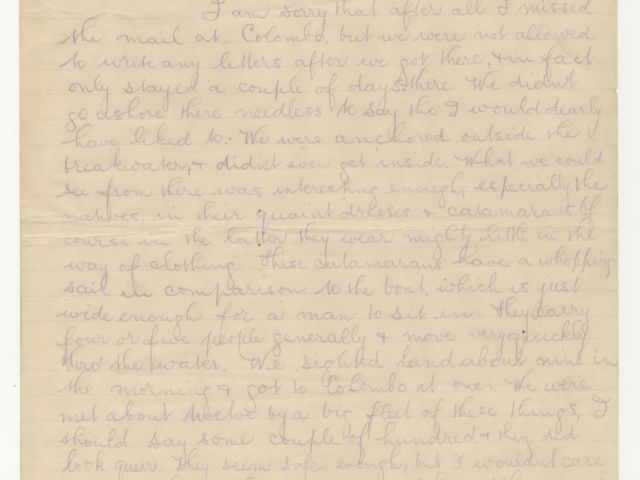 I am sorry that after all I missed
the mail at Colombo, but we were not allowed
to write any letters after we got there, & in fact
only stayed a couple of days there. We didn't
go ashore there needless to say tho' I would dearly
have liked to. We were anchored outside the
breakwater, & didn't even get inside. What we could
see from there was interesting enough, especially the
natives, in their quaint dresses & catamarans. Of
course in the latter they wear mighty little in the
way of clothing. These catamarans have a whopping
sail in comparison to the boat, which is just
wide enough for a man to sit in. They carry
four or five people generally & move very quickly
thro' the water. We sighted land about nine in
the morning & got to Colombo at one. We were
met about twelve by a big fleet of these things, I
should say some couple of hundred & they did
look queer. They seem safe enough, but I wouldn't care